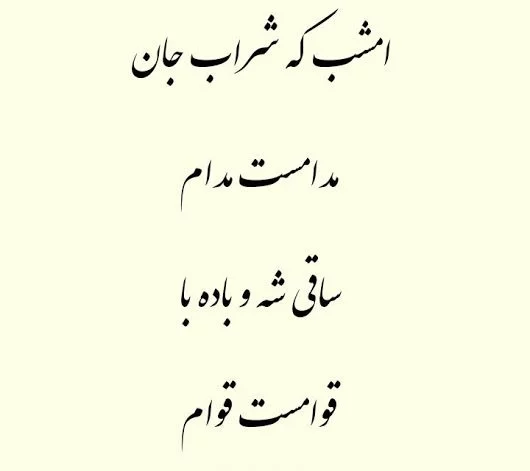 امشب که شراب جان
مدامست مدام
ساقی شه و باده با
قوامست قوام